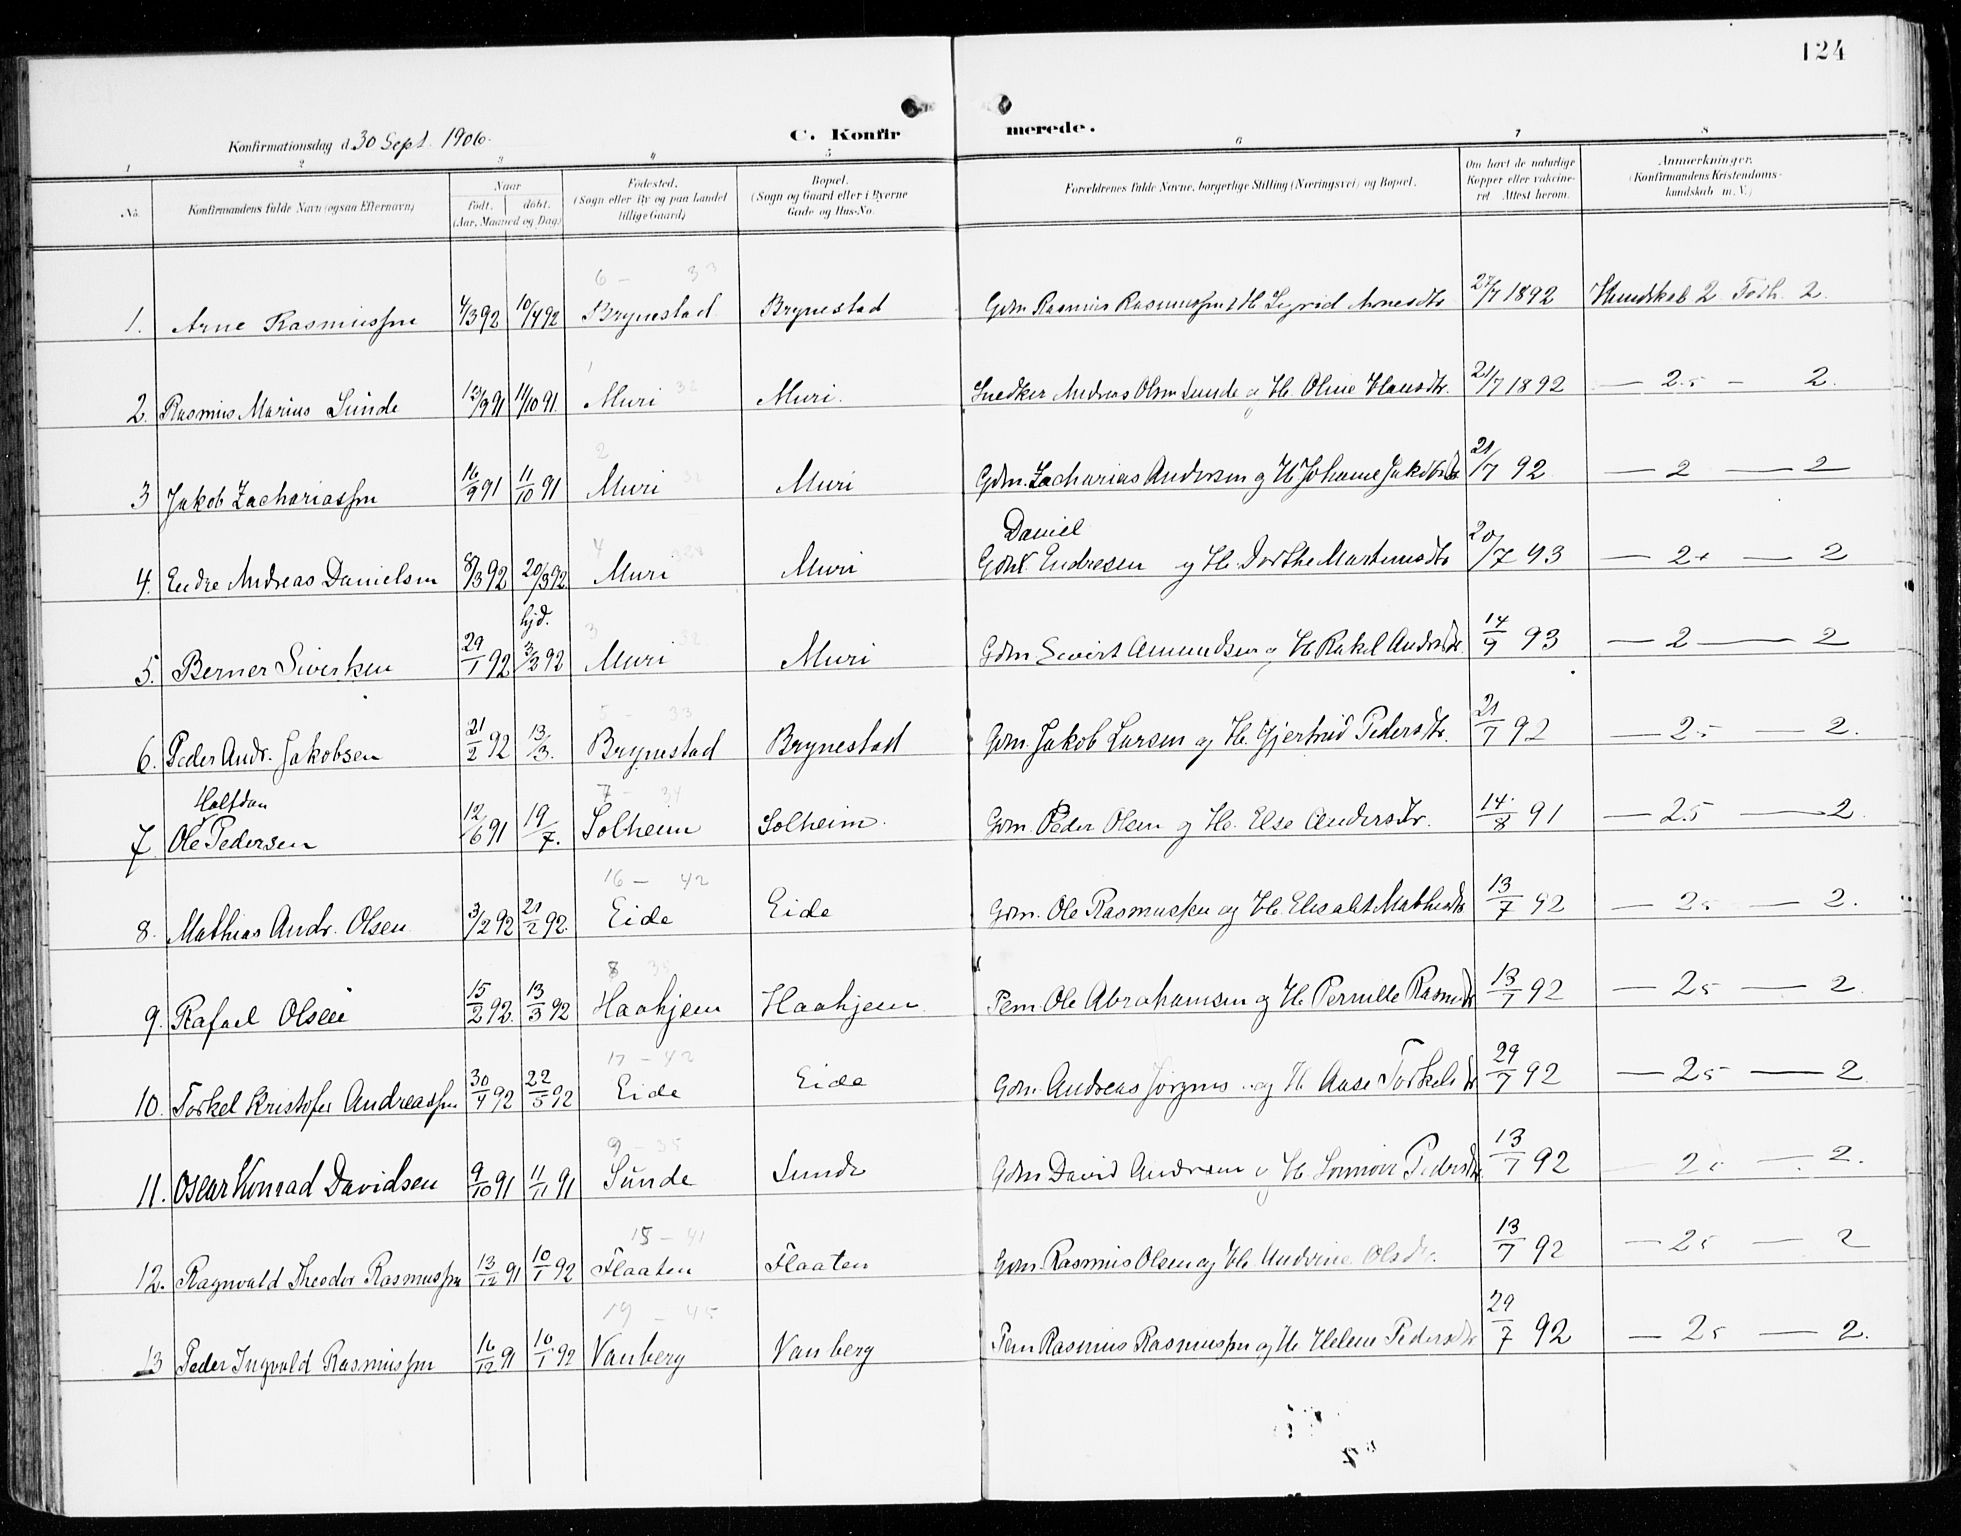 124
Konfirmationsdag d. 30 Sept. 1906.
C. Konfirmerede.
1 2 3 4 5 6 7 8
No. Konfirmandens fulde Navn (ogsaa Efternavn) Naar født. døbt. (Aar, Maaned og Dag) Fødested. (Sogn eller By og paa Landet tillige Gaard) Bopæl. (Sogn og Gaard eller i Byerne Gade og Hus-No. Forældrenes fulde Navne, borgerlige Stilling (Næringsvei) og Bopæl. Om havt de naturlige Kopper eller vaccineret. Attest herom. Anmærkninger. (Konfirmandens Kristendomskundskab m. V.)
6 – 33
1. Arne Rasmussen 4/3 92 10/4 92 Brynestad Brynestad Gdm. Rasmus Rasmussen & H. Sigrid Arnesdtr 27/7 1892 Kundskab 2. Forh. 2.
1 32
2. Rasmus Marius Sunde 13/9 91 11/10 91. Muri Muri. Snedker Andreas Olsen Sunde og H. Oline Hansdtr. 21/7 1892 — 2.5 — 2.
2 32
3 Jakob Zachariassen 16/9 91 11/10 91 Muri Muri Gdm. Zacharias Andersen og H. Johanne Jakobsdtr 21/7 92 — 2 — 2
4 32
4. Endre Andreas Danielsen 8/3 92 20/3 92. Muri Muri Gdm. Daniel Endresen og H. Dorthe Martinusdtr 20/7 93 — 2. — 2
3 32
5. Berner Sivertsen 29/1 92 hjd. 3/3 92 Muri Muri Gdm Sivert Amundsen og H. Rakel Andersdtr. 14/9 93 — 2 — 2
5 – 33
6. Peder Andr. Jakobsen 21/2 92 13/3. Brynestad Brynestad Gdm. Jakob Larsen og H. Gjertrud Pedersdtr. 21/7 92 — 2.5 — 2.
7 – 34
7 Ole Halfdan Pedersen 12/6 91 19/7. Solheim Solheim. Gdm. Peder Olsen og H. Else Andersdtr. 14/8 91 — 2.5 — 2.
16 – 42
8. Mathias Andr. Olsen 3/2 92 21/2 92. Eide Eide Gdm. Ole Rasmussen og H. Elisabet Mathisdtr 13/7 92 — 2.5 — 2.
8 35
9. Rafael Olsen 15/2 92. 13/3 92 Haahjem Haahjem. Fem. Ole Abrahamsen og H. Pernille Rasmusdtr 13/7 92 — 2.5 — 2.
17 – 42
10. Torkel Kristofer Andreassen 30/4 92 22/5 92 Eide Eide Gdm. Andreas Jørgens. og H. Aase Torkelsdtr 29/7 92 — 2.5 — 2.
9 – 35
11. Oscar Konrad Davidsen 9/10 91 11/11 91 Sunde Sunde Gdm David Andersen og H. Pedersdtr 13/7 92 — 2. — 2.
15 – 41
12. Ragnvald Theodor Rasmussen 13/12 91 10/1 92 Flaaten Flaaten Gdm. Rasmus Olsen og H. Andrine Olsdtr. 13/7 92 — 2.5 — 2
19 – 45
13 Peder Ingvald Rasmussen 16/12 91 10/1 92 Vanberg Vanberg Fem Rasmus Rasmussen og H. Helene Pedersdtr 29/7 92 — 2.5 — 2.